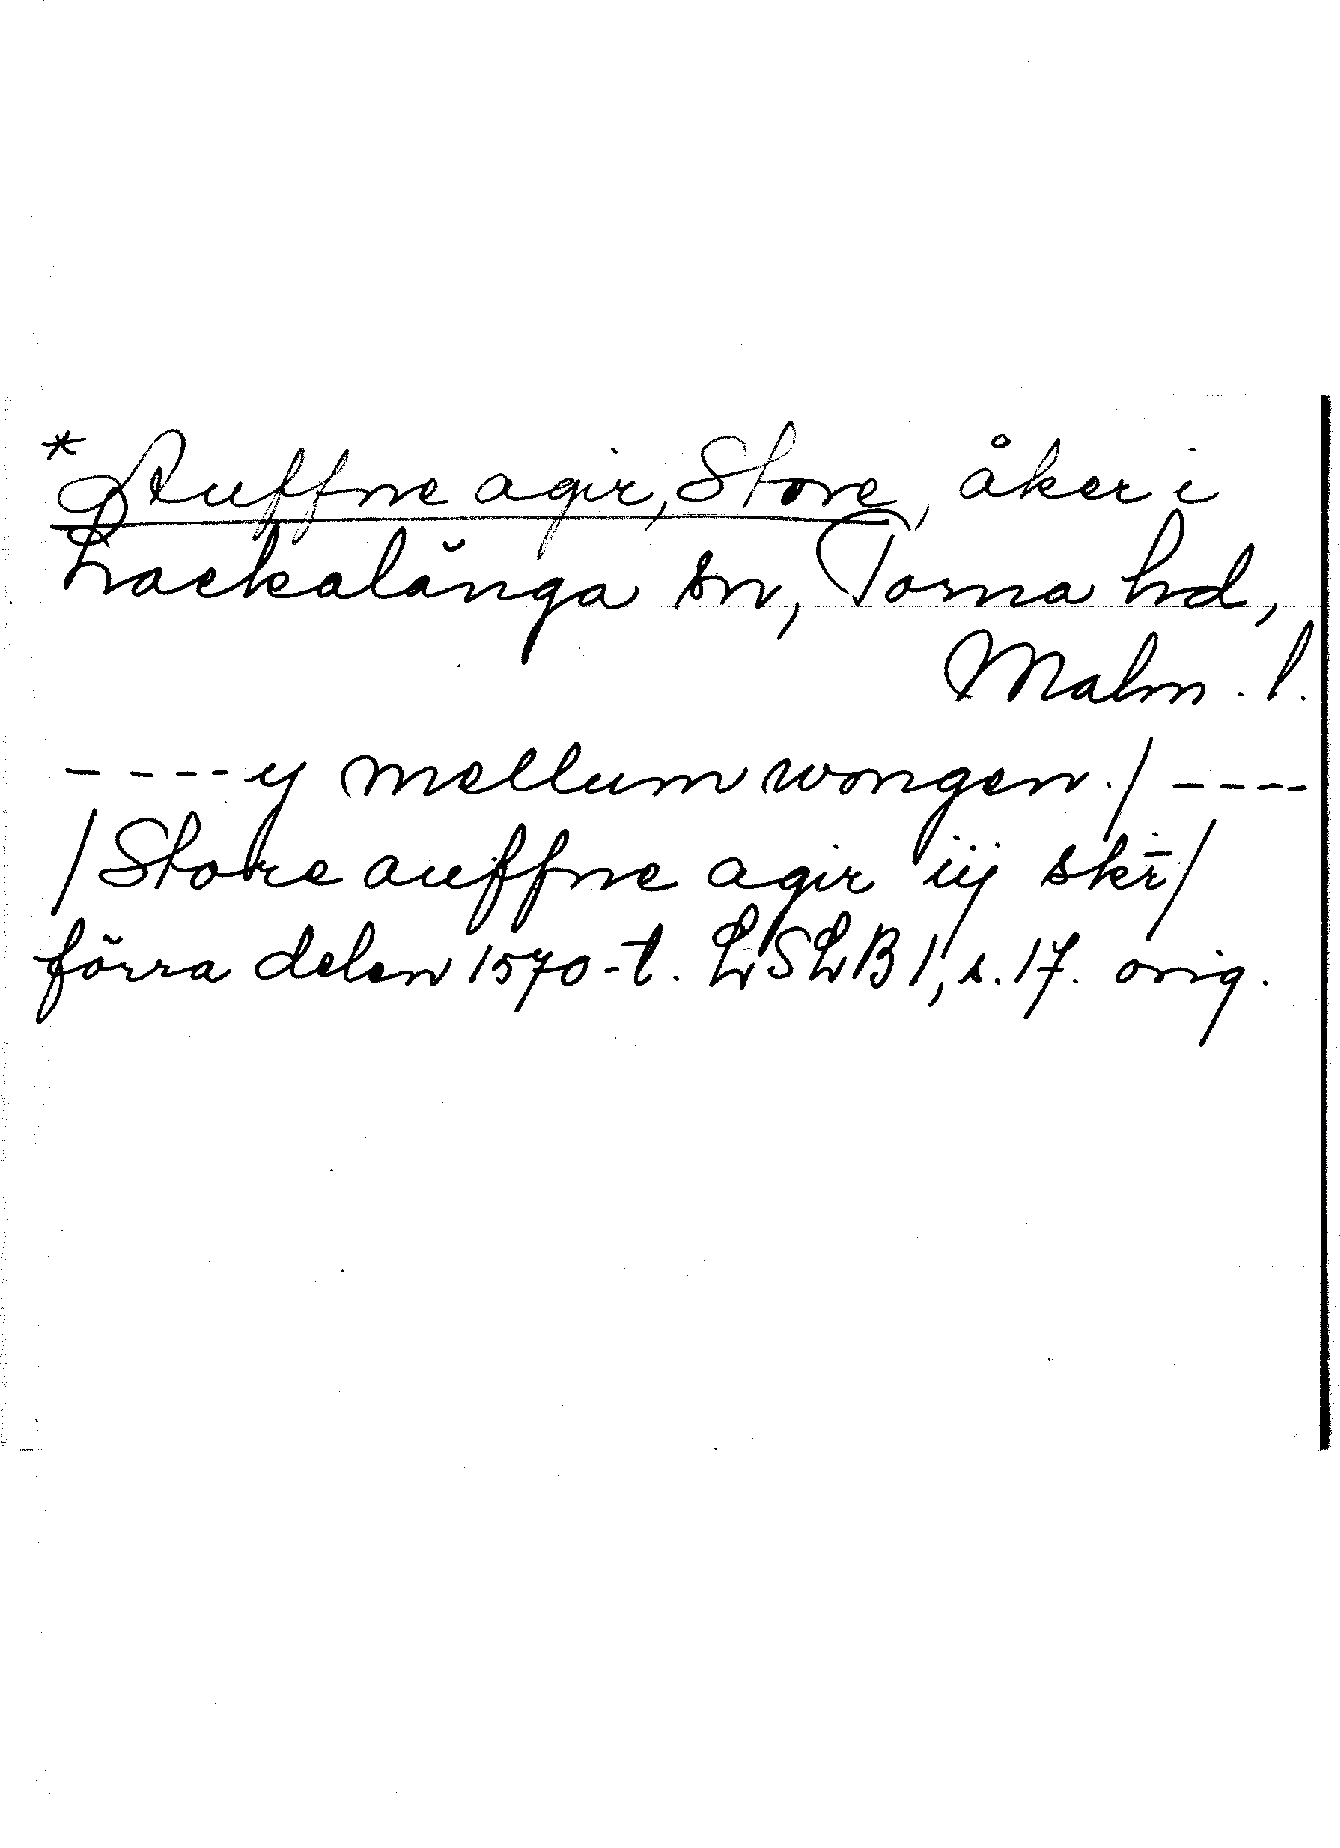 *Auffne agir, Store, åker i
Lackalänga sn, Torna hd,
Malm. l.
----y mellum wongen./----
/Store auffne agir iij skr̄/
förra delen 1570-t. LSLB 1, s. 17. orig.